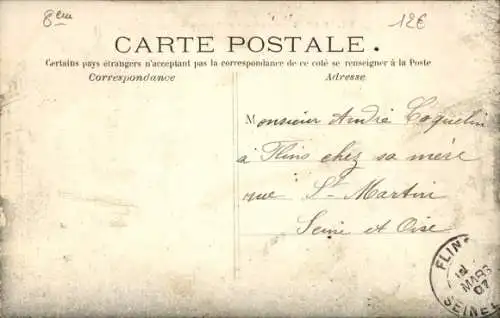 8em
12€
CARTE POSTALE.
Certains pays étrangers n'acceptant pas la correspondance de ce coté se renseigner à la Poste
Correspondance
Adresse
Monsieur André Coquelin
à Flins chez sa mère
rue St Martin
Seine et Oise
FLIN
MARS
07
SEINE